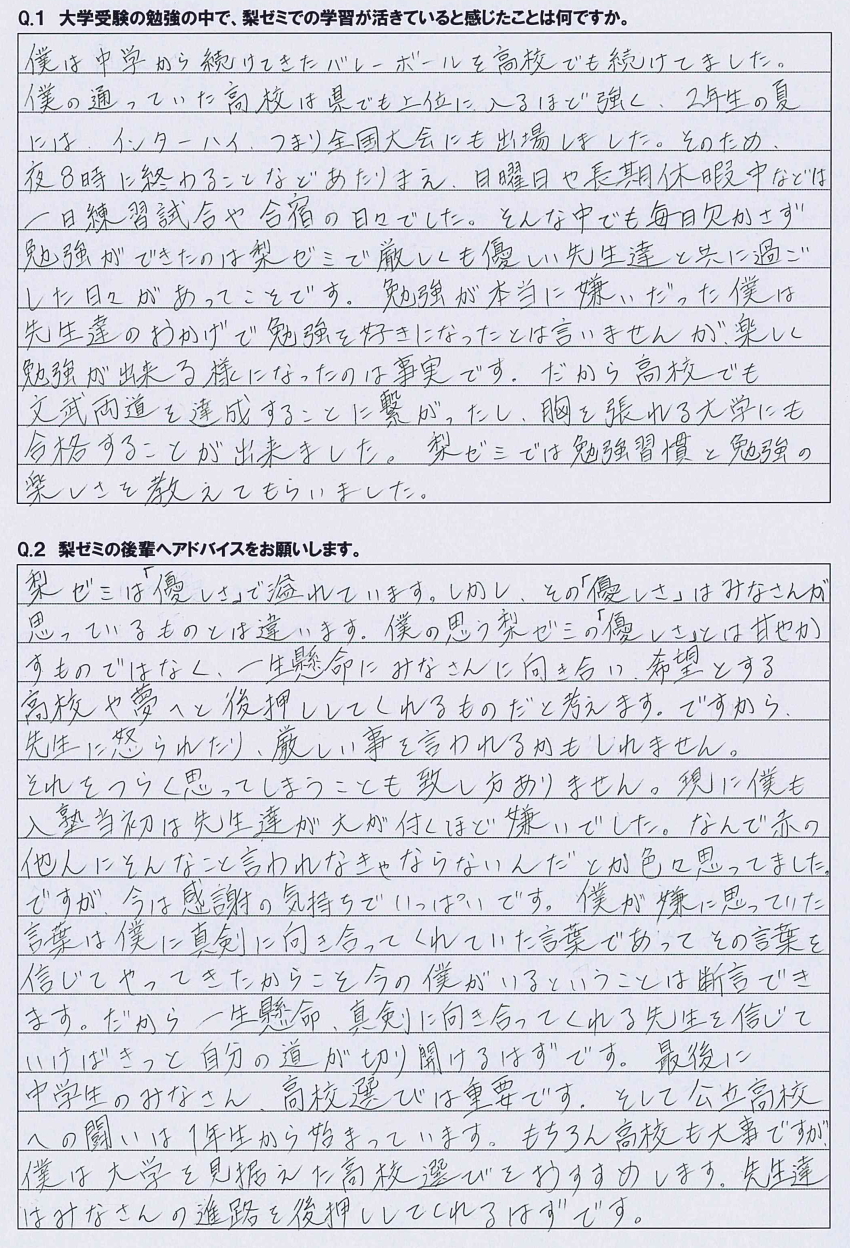 Q.1 大学受験の勉強の中で、梨ゼミでの学習が活きていると感じたことは何ですか。
僕は中学から続けてきたバレーボールを高校でも続けてました。
僕の通っていた高校は県でも上位に入るほど強く、2年生の夏
には、インターハイ、つまり全国大会にも出場しました。そのため、
夜8時に終わることなどあたりまえ、日曜日や長期休暇中などは
一日練習試合や合宿の日々でした。そんな中でも毎日欠かさず
勉強ができたのは梨ゼミで厳しくも優しい先生達と共に過ご
した日々があってことです。勉強が本当に嫌いだった僕は
先生達のおかげで勉強を好きになったとは言いませんが、楽しく
勉強が出来る様になったのは事実です。だから高校でも
文武両道を達成することに繋がったし、胸を張れる大学にも
合格することが出来ました。梨ゼミでは勉強習慣と勉強の
楽しさを教えてもらいました。
Q.2 梨ゼミの後輩へアドバイスをお願いします。
梨ゼミは「優しさ」で溢れています。しかし、その「優しさ」はみなさんが
思っているものとは違います。僕の思う梨ゼミの「優しさ」とは甘やか
すものではなく、一生懸命にみなさんに向き合い、希望とする
高校や夢へと後押ししてくれるものだと考えます。ですから、
先生に怒られたり、厳しい事を言われるかもしれません。
それをつらく思ってしまうことも致し方ありません。現に僕も
入塾当初は先生達が大が付くほど嫌いでした。なんで赤の
他人にそんなこと言われなきゃならないんだとか色々思ってました。
ですが、今は感謝の気持ちでいっぱいです。僕が嫌に思っていた
言葉は僕に真剣に向き合ってくれていた言葉であってその言葉を
信じてやってきたからこそ今の僕がいるということは断言でき
ます。だから一生懸命、真剣に向き合ってくれる先生を信じて
いけばきっと自分の道が切り開けるはずです。最後に
中学生のみなさん、高校選びは重要です。そして公立高校
への闘いは1年生から始まっています。もちろん高校も大事ですが、
僕は大学を見据えた高校選びをおすすめします。先生達
はみなさんの進路を後押ししてくれるはずです。